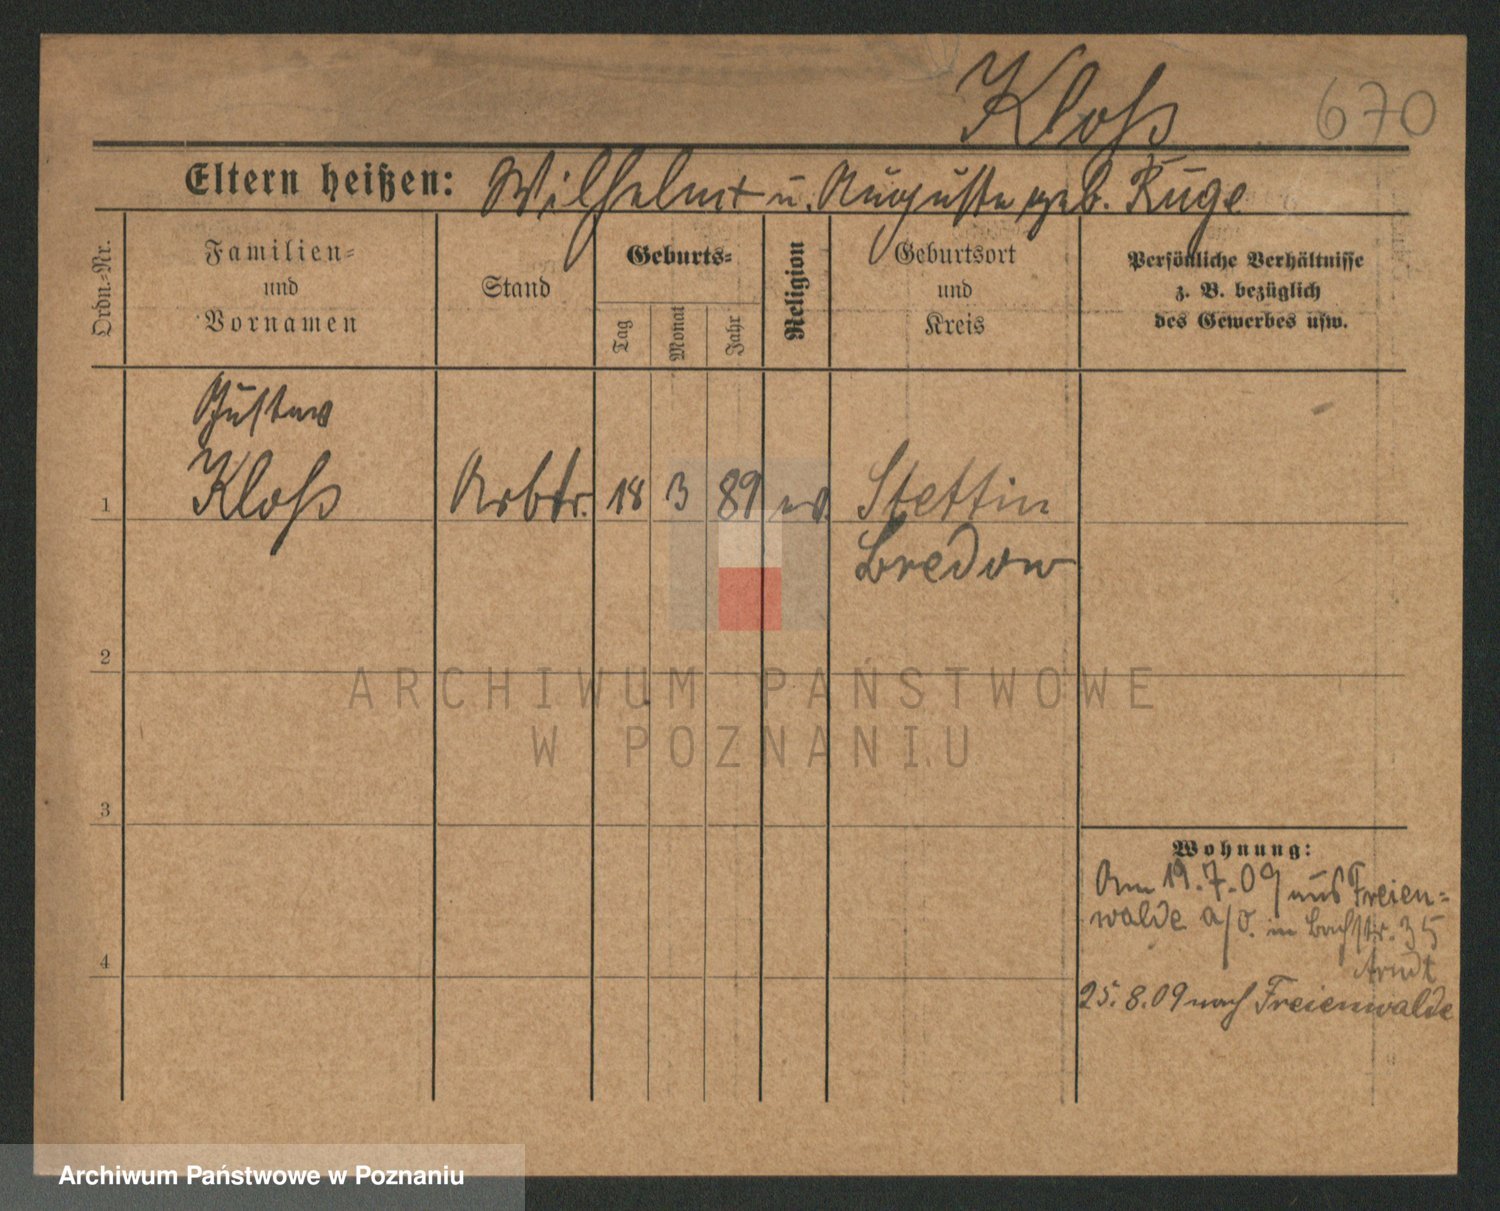 Kloß 670
Eltern heißen: Wilhelm † u. Auguste geb. Ruge
Ordn.-Nr.
Familien-
und
Vornamen
Stand
Geburts-
Tag
Monat
Jahr
Religion
Geburtsort
und
Kreis
Persönliche Verhältnisse
z. B. bezüglich
des Gewerbes usw.
Gustav
1 Kloß Arbtr. 18 3 89 ev. Stettin
Bredow
2
ARCHIWUM PAŃSTWOWE
W POZNANIU
3
Wohnung:
Am 19.7.09 aus Freien-
walde a/O. in Bachstr. 35
Arndt
4
25.8.09 nach Freienwalde
Archiwum Państwowe w Poznaniu